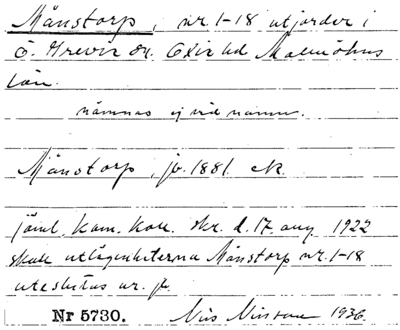 Månstorp, nr. 1-18 utjorder i
Ö. Grevie sn. Oxie hd Malmöhus
län.
nämnas ej vid namn.
Månstorp, jb. 1881. ek.
jäml. kam. koll. skr. d. 17 aug 1922
skall utlägenheterna Månstorp nr. 1-18
uteslutas ur. jb.
Nr 5730. Nils Nilsson 1936.